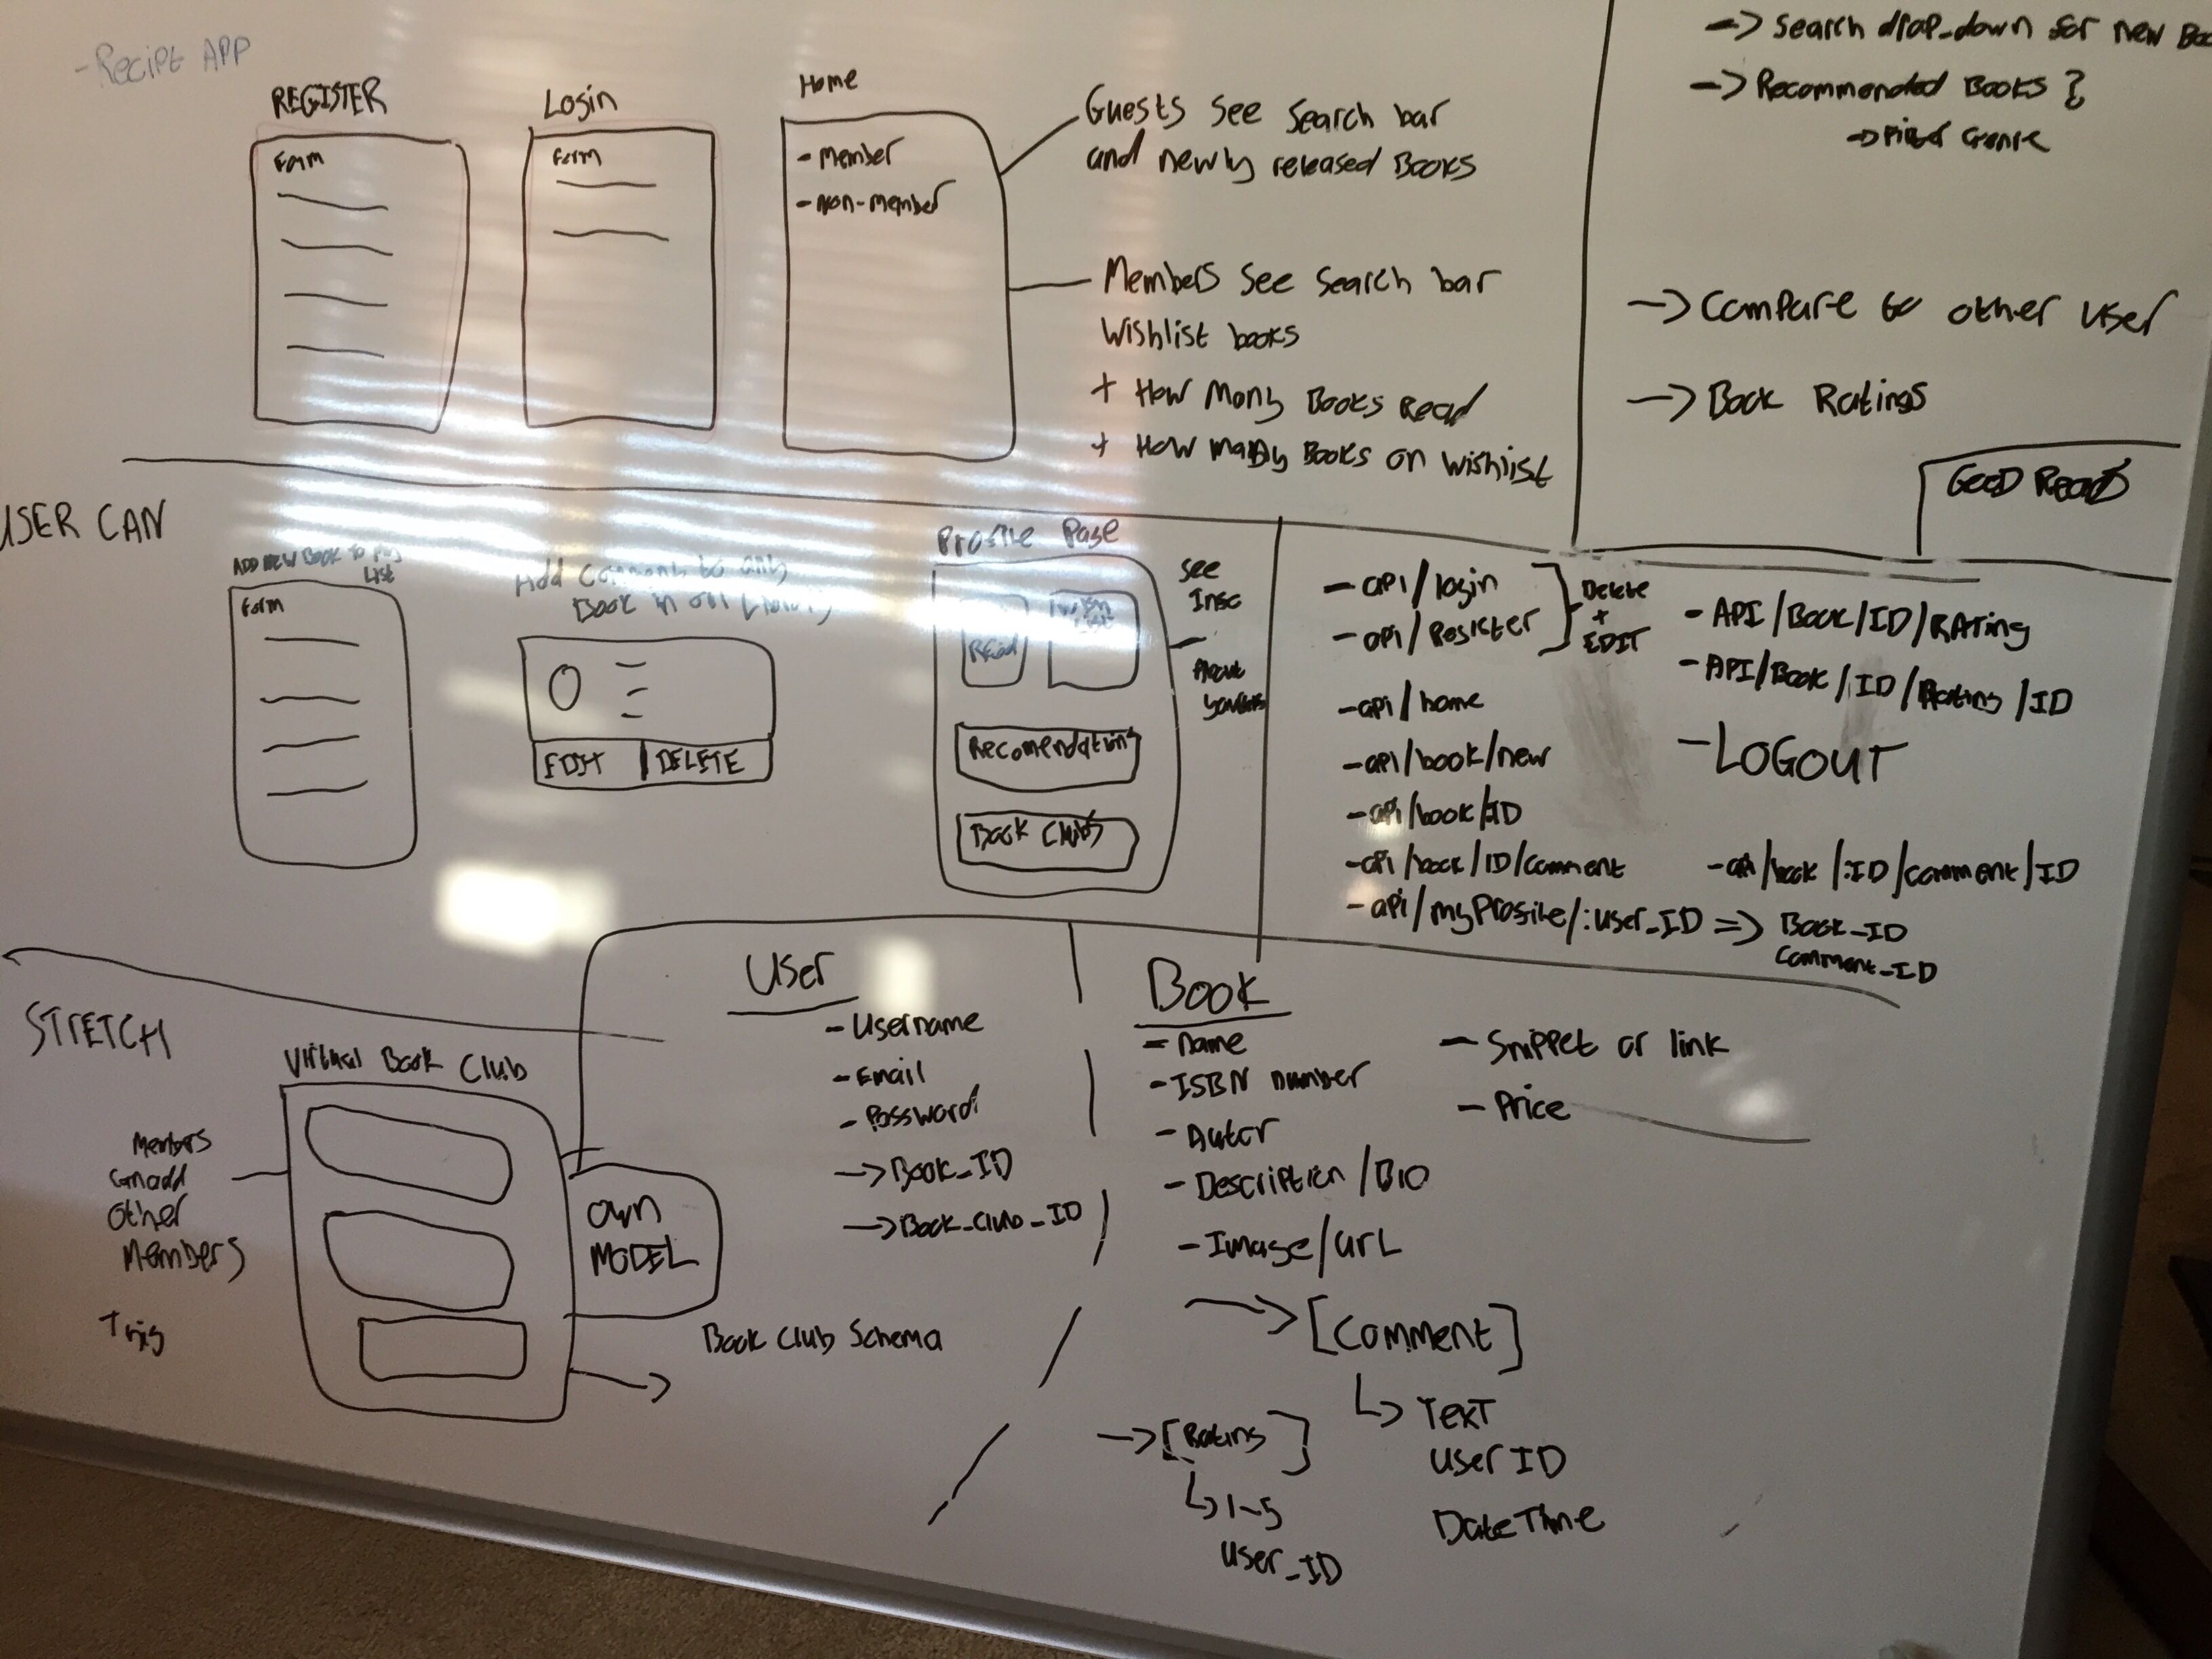 -Recipt APP
REGISTER
Form
Login
Form
Home
- Member
- Non-member
Guests see search bar
and newly released Books
Members see search bar
wishlist books
+ How Many Books Read
+ How many Books on wishlist
-> Search drop-down for new
-> Recommended Books ?
-> Filter Genre
-> Compare to other user
-> Book Ratings
GOOD READS
USER CAN
ADD NEW BOOK TO My
List
Form
Add Comment to any
Book in our Library
EDIT | DELETE
Profile Page
Read
Wish
List
Recomendations
Book Clubs
See
Info
About
- api/login
- api/Register
Delete
+
EDIT
- api/home
- api/book/new
- api/book/:ID
- api/book/ID/comment
- api/myProfile/:user_ID => Book_ID
Comment_ID
- API/Book/ID/RATing
- API/Book/:ID/Rating/ID
- LOGOUT
- api/book/:ID/comment/ID
STRETCH
Virtual Book Club
Members
Can add
Other
Members
OWN
MODEL
Book Club Schema
User
- Username
- Email
- Password
-> Book_ID
-> Book_Club_ID
Book
- name
- ISBN number
- Autor
- Description/BIO
- Image/URL
- Snippet or link
- Price
-> [Comment]
↳ Text
User ID
DateTime
-> [Rating]
↳ 1-5
User_ID